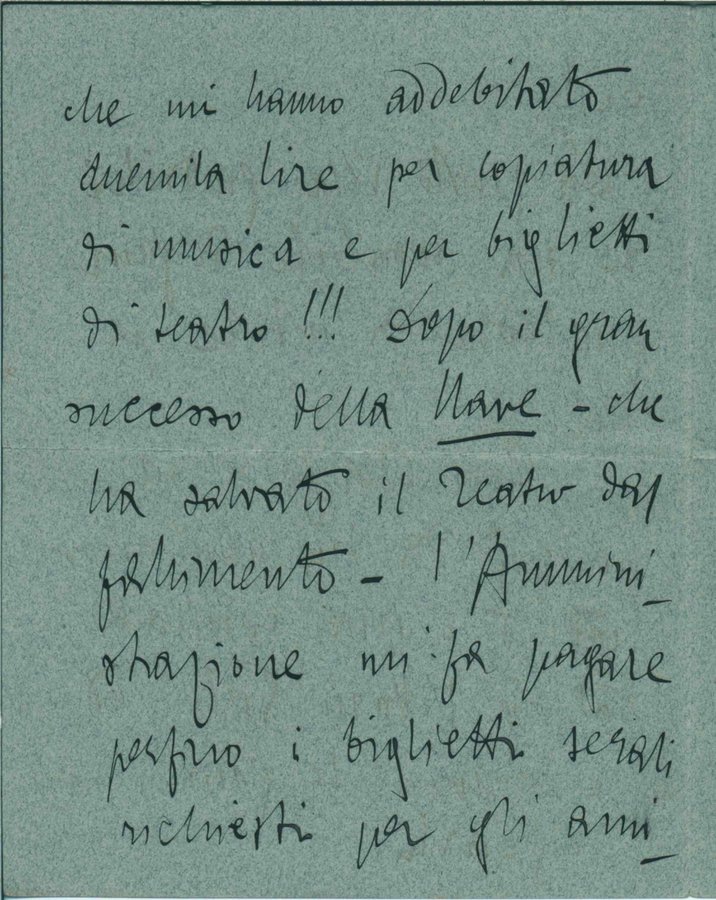 che mi hanno addebitato
duemila lire per copiatura
di musica e per biglietti
di teatro !!! Dopo il gran
successo della Nave - che
ha salvato il Teatro dal
fallimento - l'Ammini_
strazione mi fa pagare
perfino i biglietti serali
richiesti per gli ami_